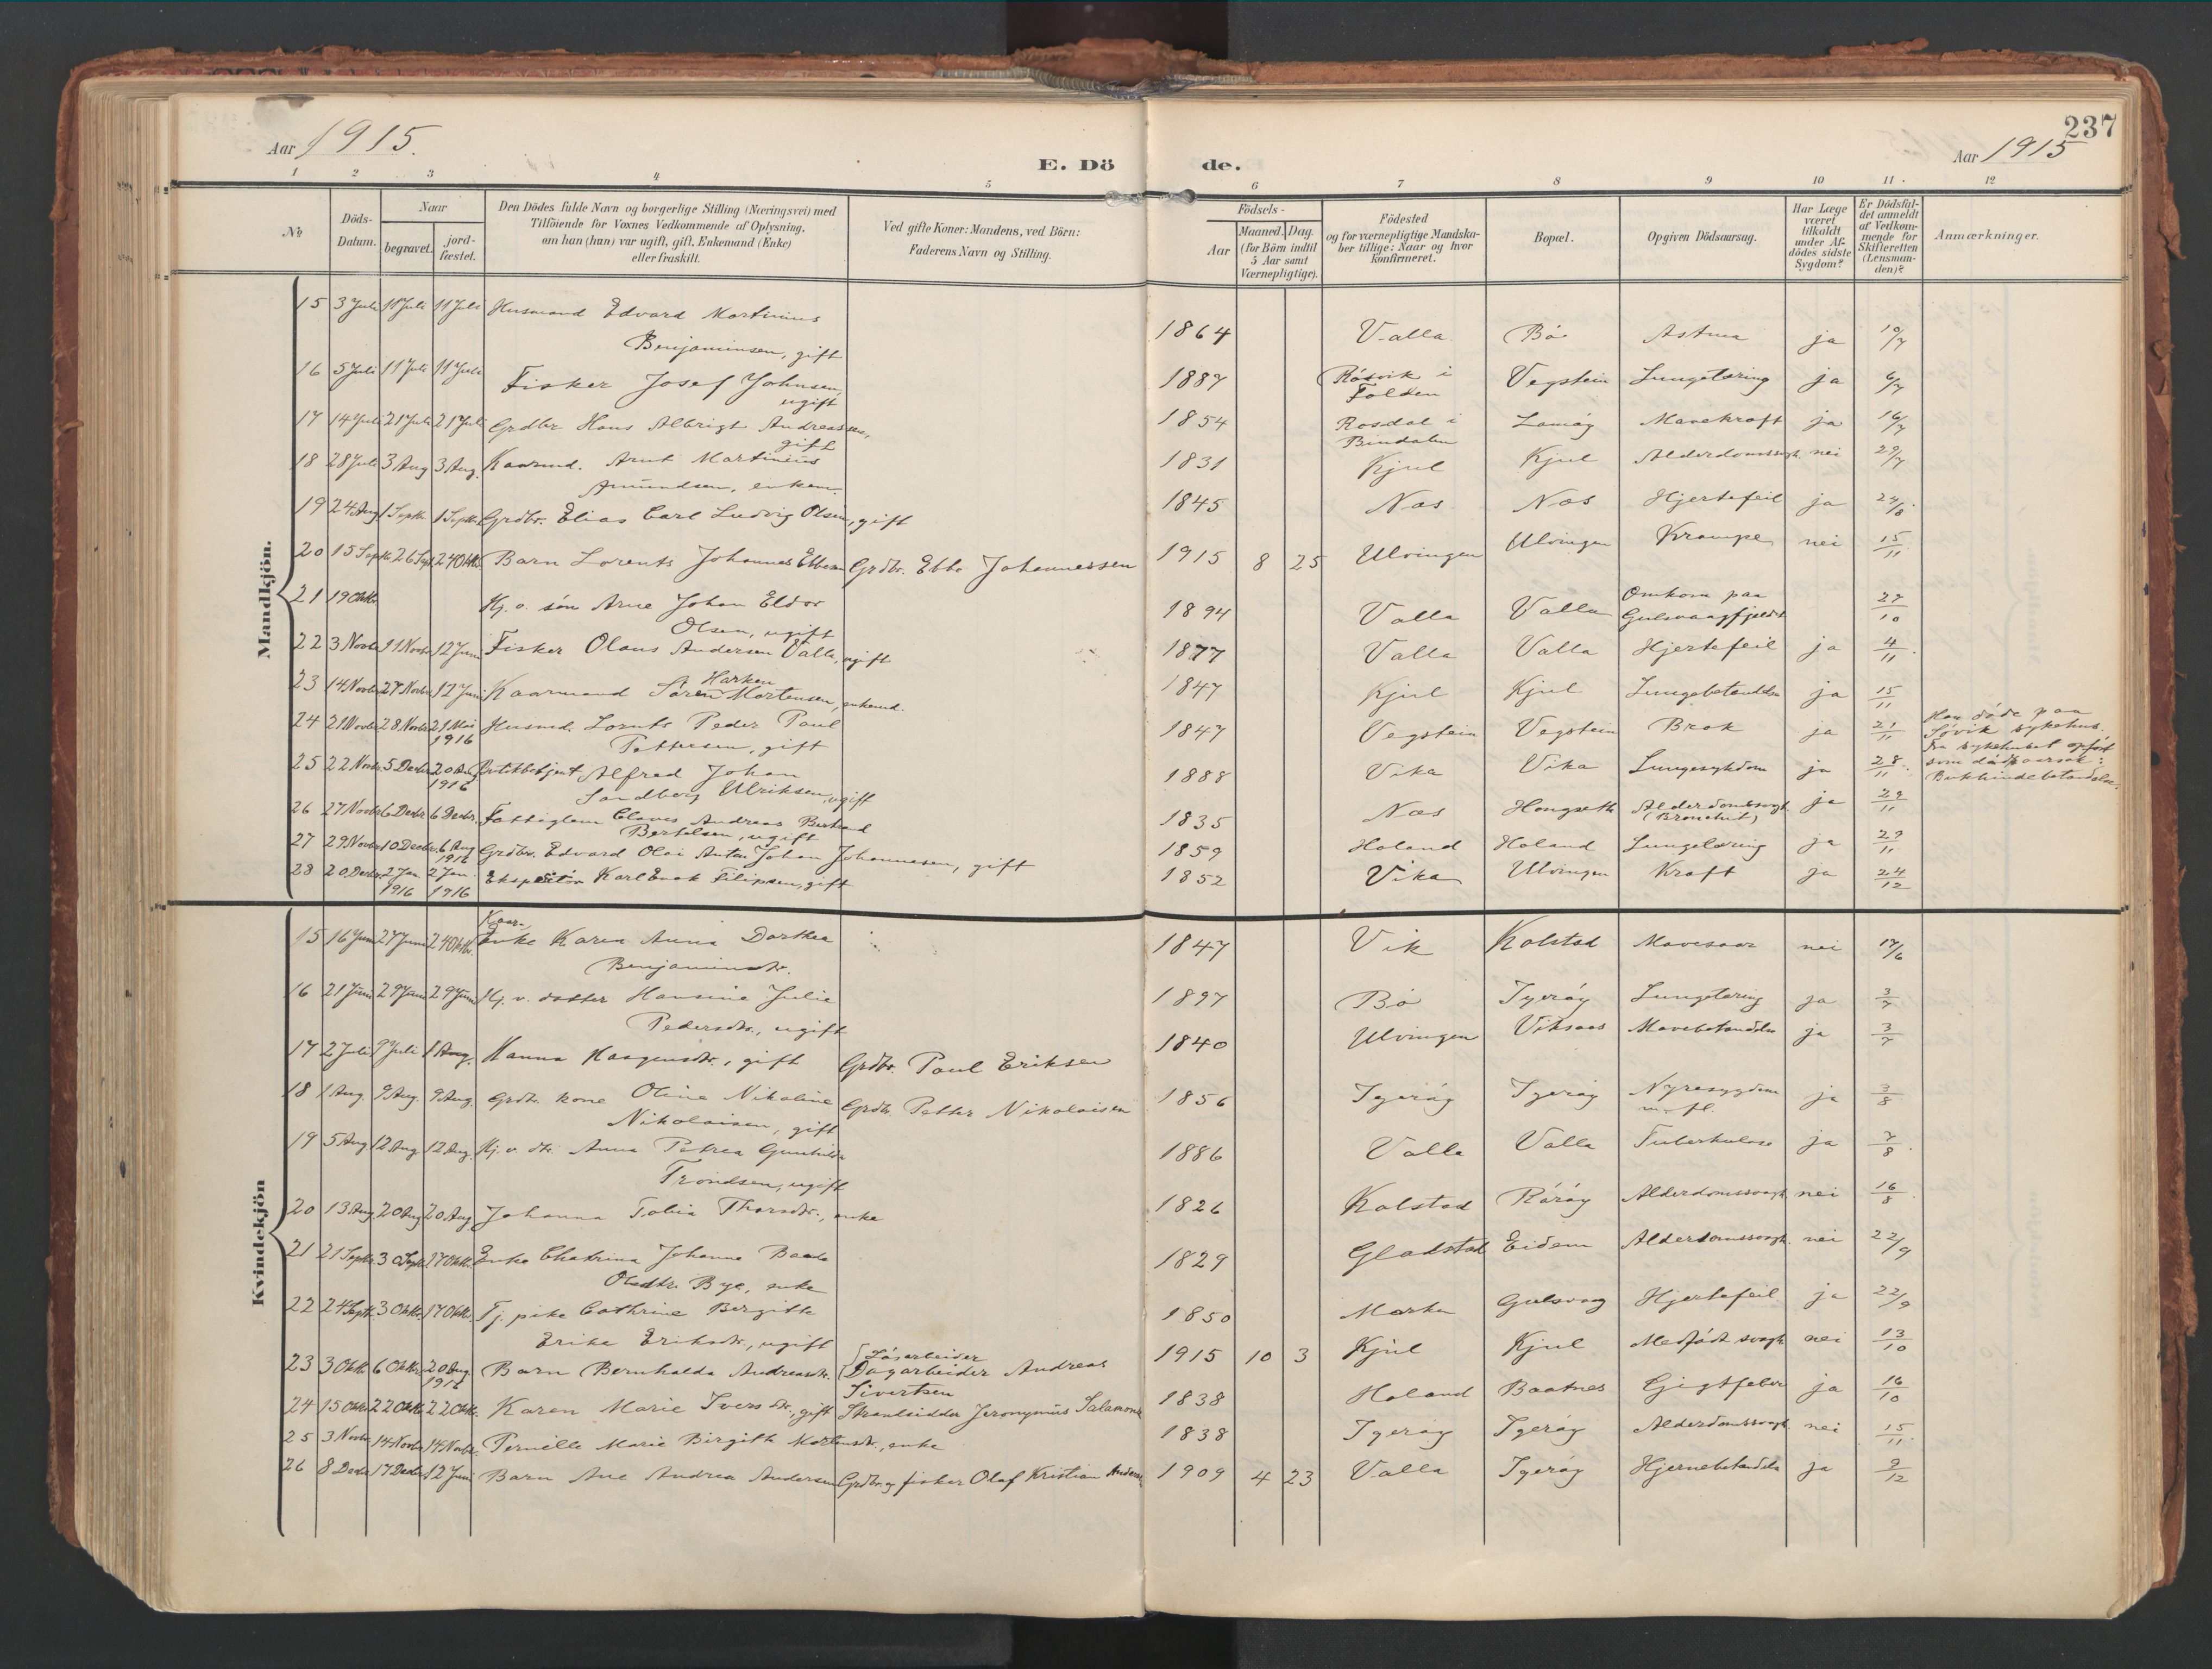 237
Aar 1915.
E. Döde.
Aar 1915
1 2 3 4 5 6 7 8 9 10 11 12
No
Döds-Datum.
Naar
begravet.
jordfæstet.
Den Dödes fulde Navn og borgerlige Stilling (Næringsvei) med
Tilföiende for Voxnes Vedkommende af Oplysning,
om han (hun) var ugift, gift, Enkemand (Enke)
eller fraskilt.
Ved gifte Koner: Mandens, ved Börn:
Faderens Navn og Stilling.
Födsels-
Aar
Maaned. Dag.
(for Börn indtil
5 Aar samt
Værnepligtige).
Födested
og for værnepligtige Mandskaber tillige: Naar og hvor
konfirmeret.
Bopæl.
Opgiven Dödsaarsag.
Har Læge
været
tilkaldt
under Afdödes sidste
Sygdom?
Er Dödsfaldet anmeldt
af Vedkommende for
Skifteretten
(Lensmanden)?
Anmærkninger.
Mandkjön.
15 3 Juli 11 Juli 11 Juli Husmand Edvard Martinius
Benjaminsen, gift 1864 Valla Bø Astma ja 10/7
16 5 Juli 11 Juli 11 Juli Fisker Josef Johnsen,
ugift 1887 Røsvik i Folden Vegstein Lungetæring ja 6/7
17 14 Juli 21 Juli 21 Juli Grdbr Hans Albrigt Andreassen,
gift 1854 Rosdal i Bindalen Lamøy Mavekræft ja 16/7
18 28 Juli 3 Aug 3 Aug. Kaarmd. Arnt Martinius
Amundsen, enkem. 1831 Kjul Kjul Alderdomssvagh. nei 29/7
19 24 Aug 1 Septb. 1 Septb. Grdbr. Elias Carl Ludvig Olsen, gift 1845 Næs Næs Hjertefeil ja 24/8
20 15 Septb. 26 Sept 24 Oktb. Barn Lorents Johannes Ebbesen Grdbr. Ebbe Johannessen 1915 8 25 Ulvingen Ulvingen Krampe nei 15/11
21 19 Oktb. Hj. v. søn Arne Johan Eldor
Olsen, ugift 1894 Valla Valla Omkom paa
Gulsvaagfjeldet 27/10
22 3 Novbr 11 Novbr 12 Juni Fisker Olaus Andersen Valla, ugift 1877 Valla Valla Hjertefeil ja 4/11
23 14 Novbr 27 Novbr 12 Juni Kaarmand Søren Harken Mortensen, enkemd. 1847 Kjul Kjul Lungebetændelse ja 15/11
24 21 Novbr 28 Novbr 21 Mai 1916 Husmd. Lornts Peder Paul
Pettersen, gift 1847 Vegstein Vegstein Brok ja 21/11 Han døde paa
Søvik sykehus,
fra sykehuset opført
som dødsaarsak:
Bukhindebetændelse.
25 22 Novbr. 5 Decbr 20 Aug 1916 Butikbetjent Alfred Johan
Sandberg Ulriksen, ugift 1888 Vika Vika Lungesykdom ja 28/11
26 27 Novbr 6 Decbr 6 Decbr. Fattiglem Claves Andreas Bertrad
Bertelsen, ugift 1835 Næs Hongseth Alderdomssvagh.
(Bronchit) ja 29/11
27 29 Novbr 10 Decbr. 6 Aug 1916 Grdbr. Edvard Olai Anton Johan Johannesen, gift 1859 Holand Holand Lungetæring ja 29/11
28 20 Decbr. 2 Jan 1916 2 Jan. 1916 Ekspeditør Karl Enok Filipsen, gift 1852 Vika Ulvingen Kræft ja 24/12
Kvindekjön
15 16 Juni 27 Juni 24 Oktb. Kaar-
Enke Karen Anna Dorthea
Benjaminsdtr. 1847 Vik Kolstad Mavesaar nei 17/6
16 21 Juni 29 Juni 29 Juni Hj. v. datter Hansine Julie
Pedersdtr., ugift 1897 Bø Tjerøy Lungetæring ja 3/7
17 2 Juli 9 Juli 1 Aug. Hanna Haagensdtr., gift Grdbr. Paul Eriksen 1840 Ulvingen Viksaas Mavebetændelse ja 3/7
18 1 Aug. 9 Aug. 9 Aug. Grdbr. kone Oline Nikoline
Nikolaisen, gift Grdbr. Petter Nikolaisen 1856 Tjerøy Tjerøy Nyresygdom
m. fl. ja 3/8
19 5 Aug 12 Aug 12 Aug. Hj. v. dtr. Anna Petrea Gunhilde
Trondsen, ugift 1886 Valla Valla Tuberkulose ja 7/8
20 13 Aug. 20 Aug 20 Aug Johanna Tobia Thorsdtr., enke 1826 Kolstad Rørøy Alderdomssvagh. nei 16/8
21 21 Septb. 30 Sept. 17 Oktb. Enke Chatrina Johanna
Olsdtr. Bye, enke 1829 Gladstad Eidem Alderdomssvagh. nei 22/9
22 24 Septb. 3 Oktb. 17 Oktb. Tj. pike Cathrine Bergitte
Erika Eriksdtr., ugift 1850 Marken Gulsvaag Hjertefeil ja 22/9
23 3 Oktb. 6 Oktb. 20 Aug. 1916 Barn Bernhalda Andreasdtr. Løsarbeider
Dagarbeider Andreas
Sivertsen 1915 10 3 Kjul Kjul Medfødt svagh. nei 13/10
24 15 Oktbr. 22 Oktb. 22 Oktb. Karen Marie Iversdtr., gift Strandsidder Jeronymus Salamons. 1838 Holand Baatnes Gigtfeber ja 16/10
25 3 Novbr. 14 Novbr 14 Novbr. Pernille Marie Birgith Mortensdtr., enke 1838 Tjerøy Tjerøy Alderdomssvagh. nei 15/11
26 8 Decbr. 17 Decbr 12 Juni Barn Ane Andrea Andersen Grdbr. og fisker Olaf Kristian Andersen 1909 4 23 Valla Tjerøy Hjernebetændelse ja 9/12